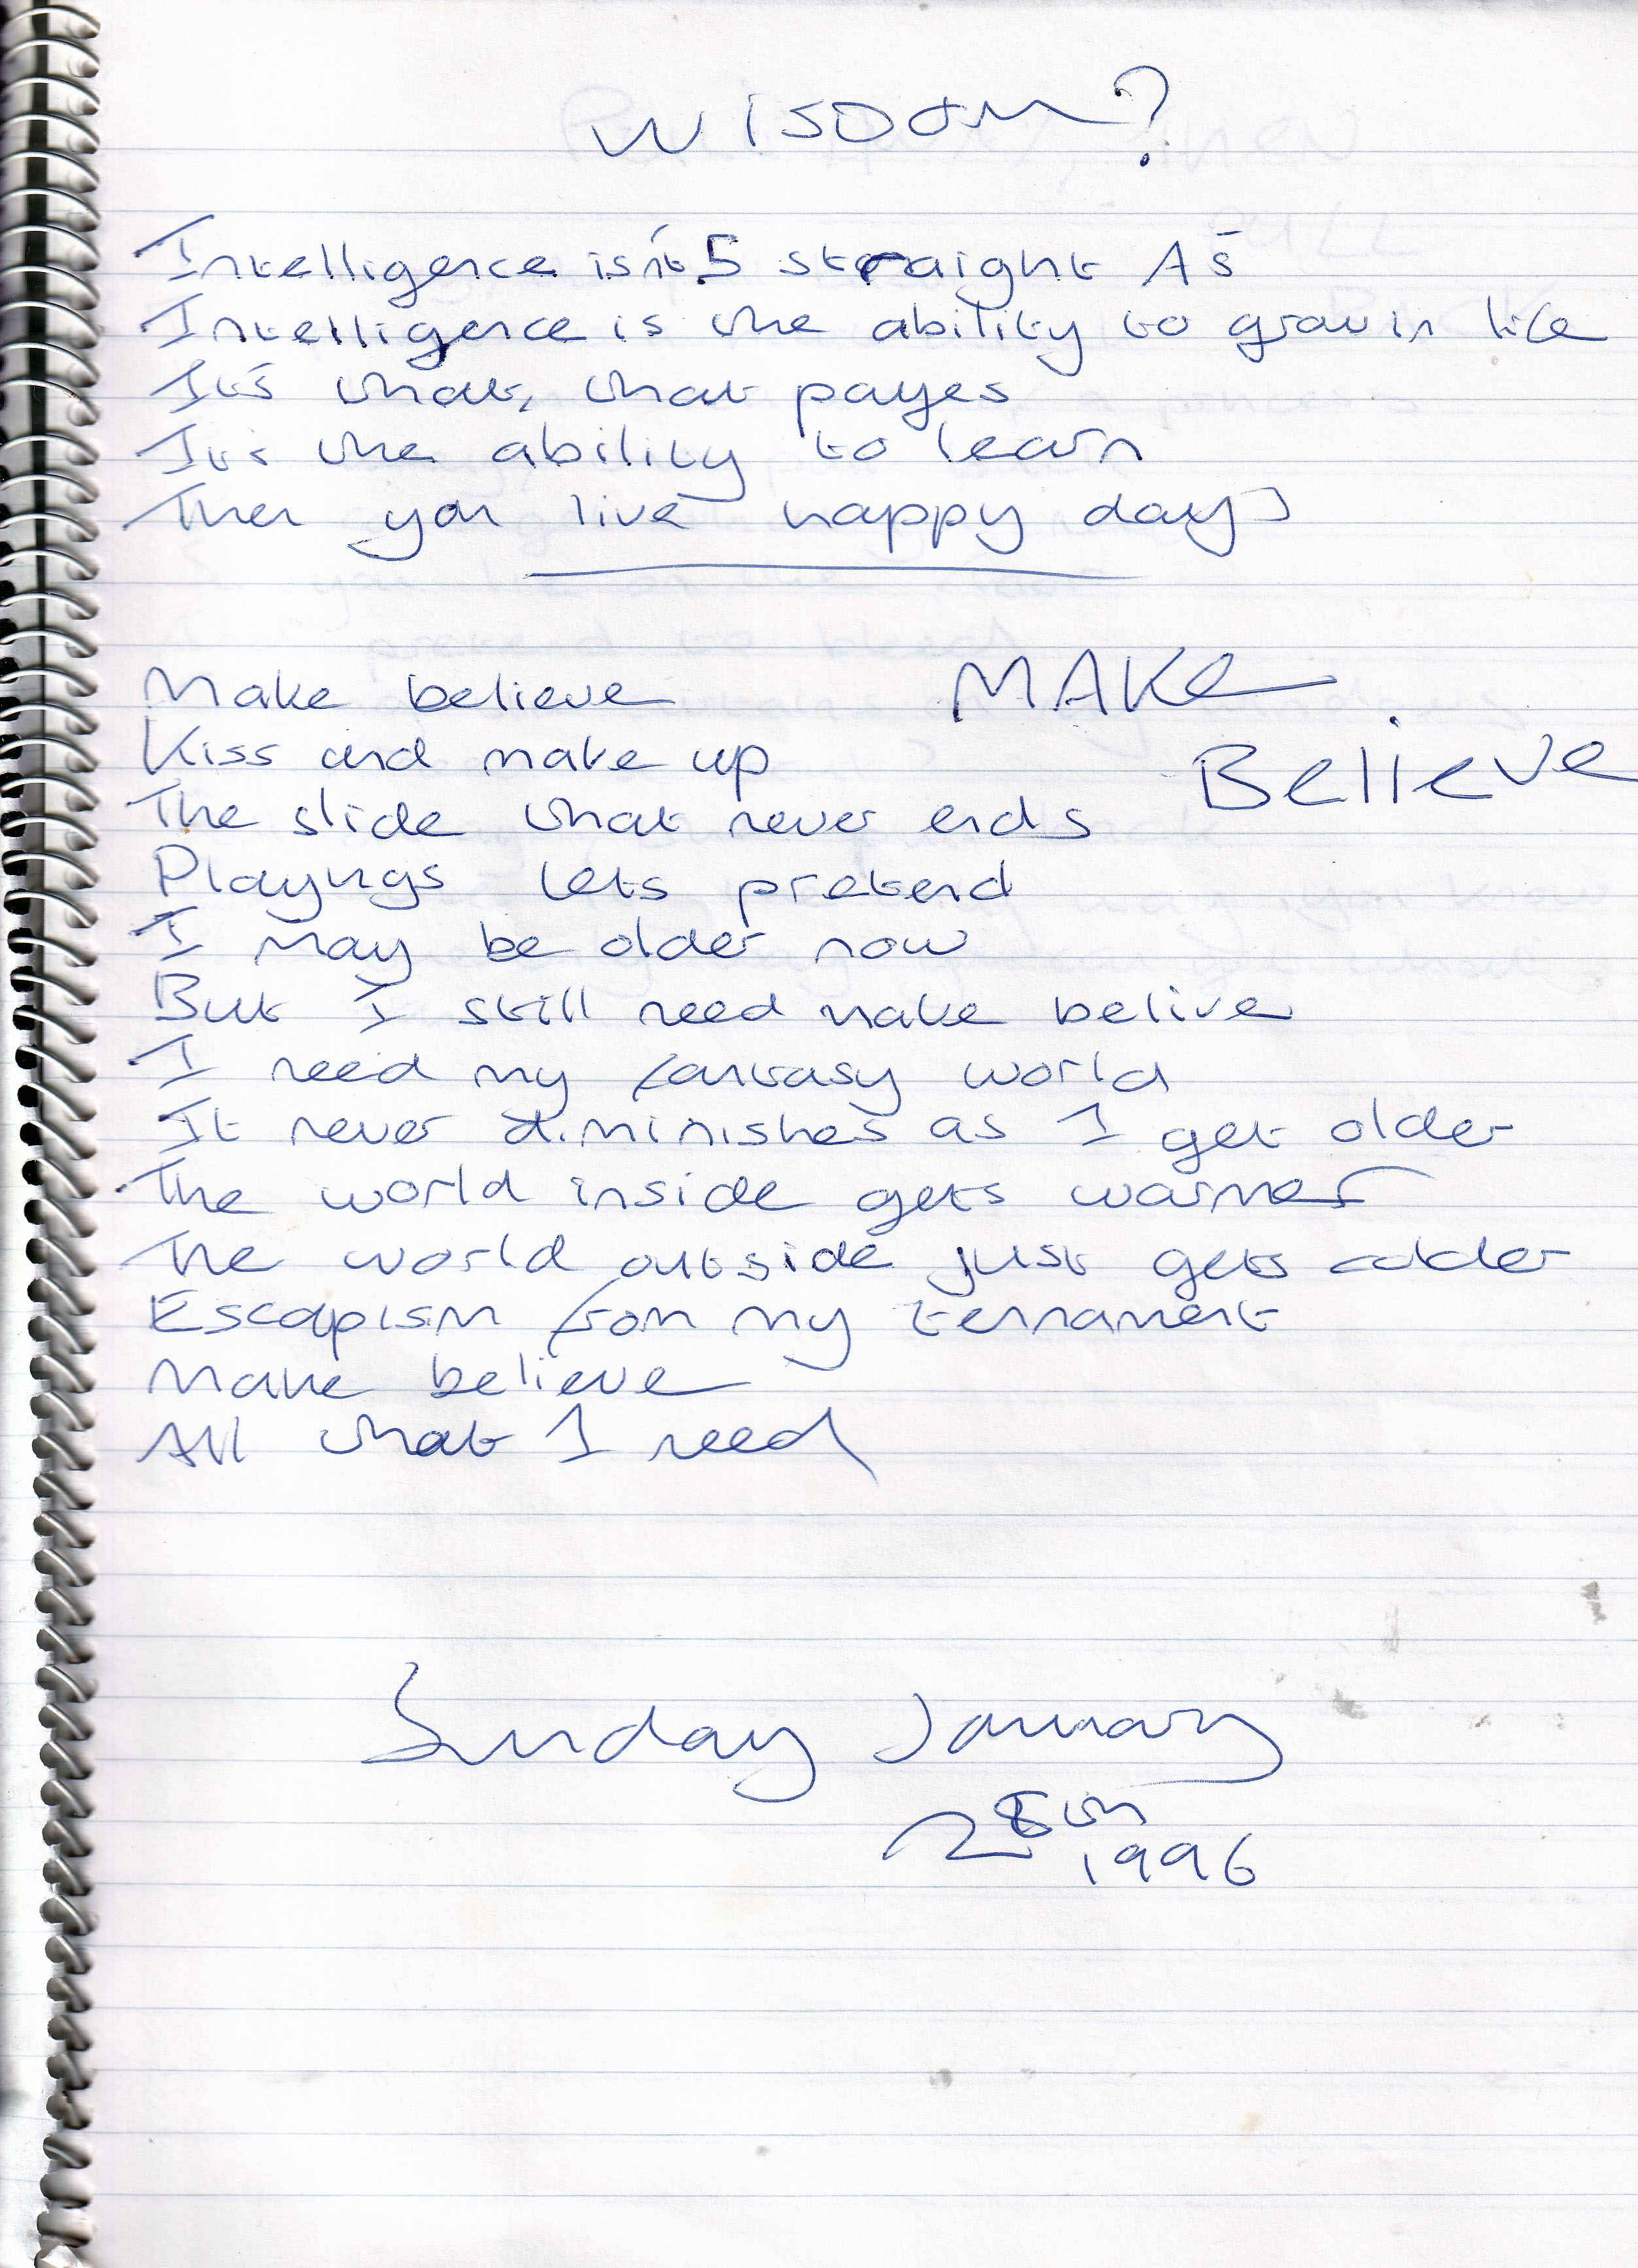 WISDOM?
Intelligence isn't 5 straight A's
Intelligence is the ability to grow in life
It's that, that payes
It's the ability to learn
Then you live happy days
MAKE
Believe
Make believe
Kiss and make up
The slide that never ends
Playings lets pretend
I may be older now
But I still need make belive
I need my fantasy world
It never diminishes as I get older
The world inside gets warmer
The world outside just gets colder
Escapism from my
Make believe
All that I need
Sunday January
28th
1996